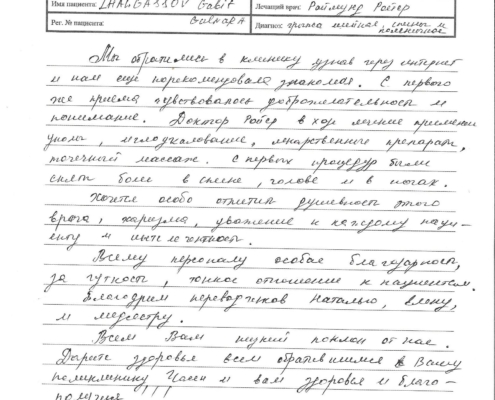 Имя пациента: ZHALGASSOV Gabit Лечащий врач: Раймунд Ройер
Рег. № пациента: GulnaRA Диагноз: грыжа шейная, спины и
Мы обратились в клинику узнав через интернет
и нам еще порекомендовала знакомая. С первого
же приема чувствовалось доброжелательность и
понимание. Доктор Ройер в ходе лечение применял
уколы, иглоукалование, лекарственные препараты,
точечный массаж. С первых процедур были
сняты боли в спине, голове и в ногах.
Хочется особо отметить душевность этого
врача, харизма, уважение к каждому паци-
енту и интелегентность.
Всему персоналу особая благодарность,
за чуткость, тонкое отношение к пациентам.
Благодрим переводчиков Наталью, Елену,
и медсестру.
Всем Вам низкий поклон от нас.
Дарите здоровья всем обратившимся в Вашу
поликлинику
и вам здоровья и благо-
получия!!!